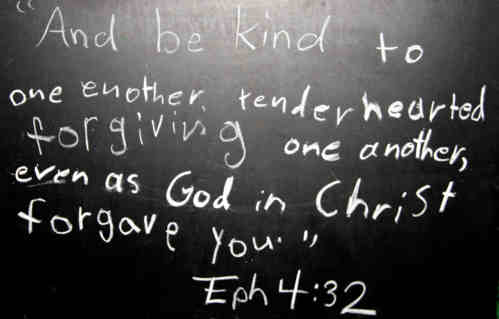 "And be kind to
one enother, tenderhearted
forgiving one another,
even as God in Christ
forgave you."
Eph 4:32